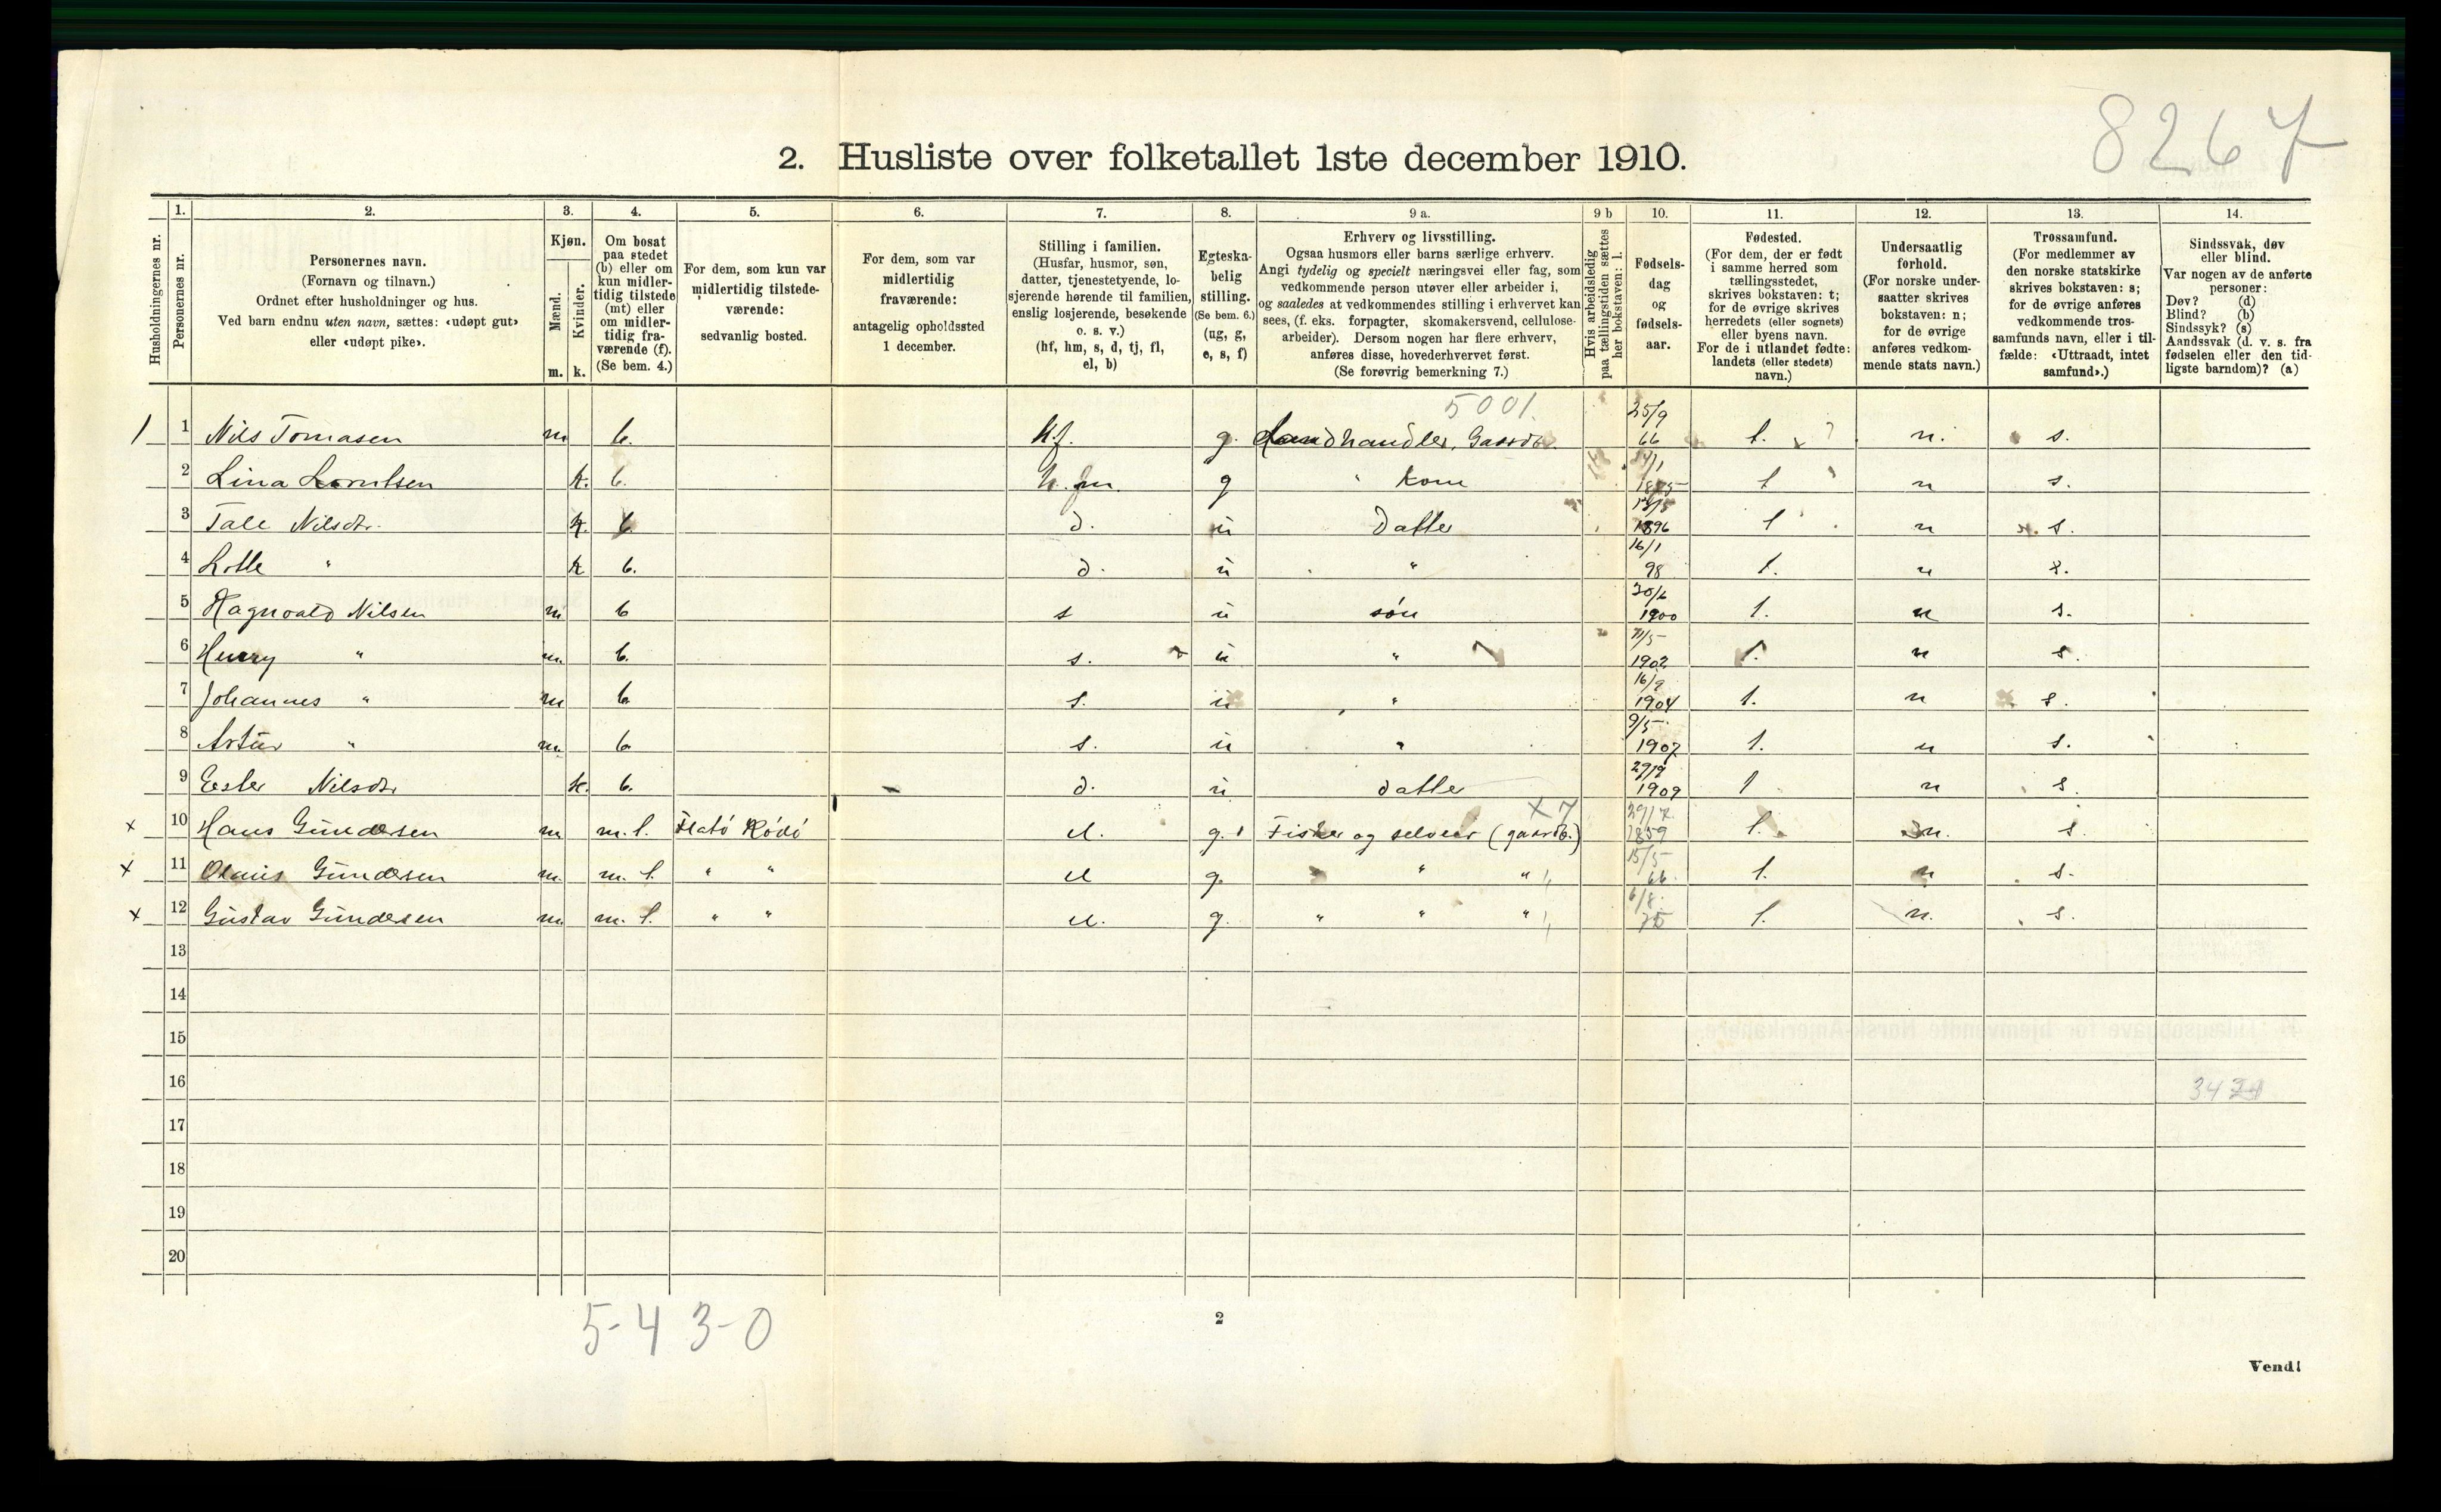 8267
2. Husliste over folketallet 1ste december 1910.
Husholdningernes nr.
1. Personernes nr.
2. Personernes navn.
(Fornavn og tilnavn.)
Ordnet efter husholdninger og hus.
Ved barn endnu uten navn, sættes: «udøpt gut»
eller «udøpt pike».
3. Kjøn.
Mænd. Kvinder.
m. k.
4. Om bosat
paa stedet
(b) eller om
kun midler-
tidig tilstede
(mt) eller
om midler-
tidig fra-
værende (f).
(Se bem. 4.)
5. For dem, som kun var
midlertidig tilstede-
værende:
sedvanlig bosted.
6. For dem, som var
midlertidig
fraværende:
antagelig opholdssted
1 december.
7. Stilling i familien.
(Husfar, husmor, søn,
datter, tjenestetyende, lo-
sjerende hørende til familien,
enslig losjerende, besøkende
o. s. v.)
(hf, hm, s, d, tj, fl,
el, b)
8. Egteska-
belig
stilling.
(Se bem. 6.)
(ug, g,
e, s, f)
9 a. Erhverv og livsstilling.
Ogsaa husmors eller barns særlige erhverv.
Angi tydelig og specielt næringsvei eller fag, som
vedkommende person utøver eller arbeider i,
og saaledes at vedkommendes stilling i erhvervet kan
sees, (f. eks. forpagter, skomakersvend, cellulose-
arbeider). Dersom nogen har flere erhverv,
anføres disse, hovederhvervet først.
(Se forøvrig bemerkning 7.)
9 b Hvis arbeidsledig
paa tællingstiden sættes
her bokstaven: l.
10. Fødsels-
dag
og
fødsels-
aar.
11. Fødested.
(For dem, der er født
i samme herred som
tællingsstedet,
skrives bokstaven: t;
for de øvrige skrives
herredets (eller sognets)
eller byens navn.
For de i utlandet fødte:
landets (eller stedets)
navn.)
12. Undersaatlig
forhold.
(For norske under-
saatter skrives
bokstaven: n;
for de øvrige
anføres vedkom-
mende stats navn.)
13. Trossamfund.
(For medlemmer av
den norske statskirke
skrives bokstaven: s;
for de øvrige anføres
vedkommende tros-
samfunds navn, eller i til-
fælde: «Uttraadt, intet
samfund».)
14. Sindssvak, døv
eller blind.
Var nogen av de anførte
personer:
Døv? (d)
Blind? (b)
Sindssyk? (s)
Aandssvak (d. v. s. fra
fødselen eller den tid-
ligste barndom)? (a)
5001.
1 1 Nils Tomasen m b. hf. g. Landhandler, Gaardb. 25/9 66 t. n. s.
2 Lina Lorntsen k. b. h.m. g " kone 1875 t n s.
3 Tale Nilsdtr. k. b. d. u datter 1896 t n s.
4 Lotte " k b. d. u " 16/1 98 t. n s.
5 Ragnvald Nilsen m b s u søn 30/6 1900 t. n s.
6 Henry " m. b. s. u " 1902 t. n s.
7 Johannes " m b s. u " 16/9 1904 t. n s.
8 Artur " m. b s. u " 9/5 1907 t. n s.
9 Ester Nilsdtr k. b. d. u datter 1909 t n s.
x 10 Hans Gundersen m m. t. Flatö Rödö el. g. Fisker og selveier (gaardb.) x 7 29/7 1859 t. n. s.
x 11 Olaus Gundersen m. m. t. " " el g. " " " 15/5 66. t. n s.
x 12 Gustav Gundersen m m. t. " " el. g. " " " 6/8. 75 t. n. s.
13
14
15
16
17
18
19
20
5-4 3-0
2
Vend!